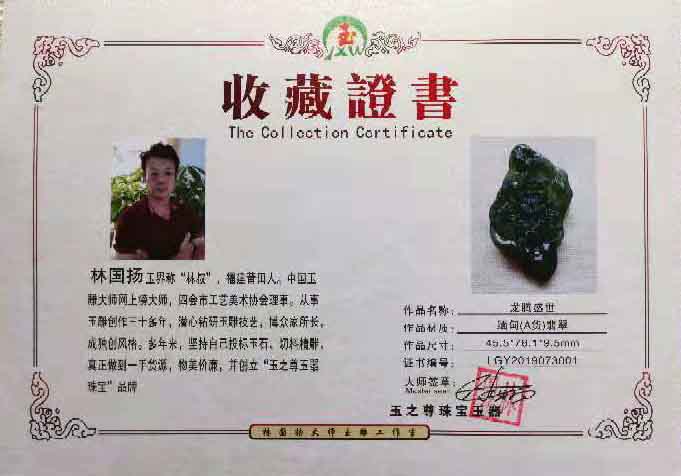 玉
收藏證書
The Collection Certificate
林国扬 玉界称“林叔”，福建莆田人。中国玉
雕大师网上榜大师，四会市工艺美术协会理事。从事
玉雕创作三十多年，潜心钻研玉雕技艺，博众家所长，
成独创风格。多年来，坚持自己投标玉石、切料精雕，
真正做到一手货源，物美价廉，并创立“玉之尊玉器
珠宝”品牌
作品名称： 龙腾盛世
作品材质： 缅甸(A货)翡翠
作品尺寸： 45.5*78.1*9.5mm
证书编号： LGY2019073001
大师签章：
Master seal
玉之尊珠宝玉器
林国扬大师玉雕工作室